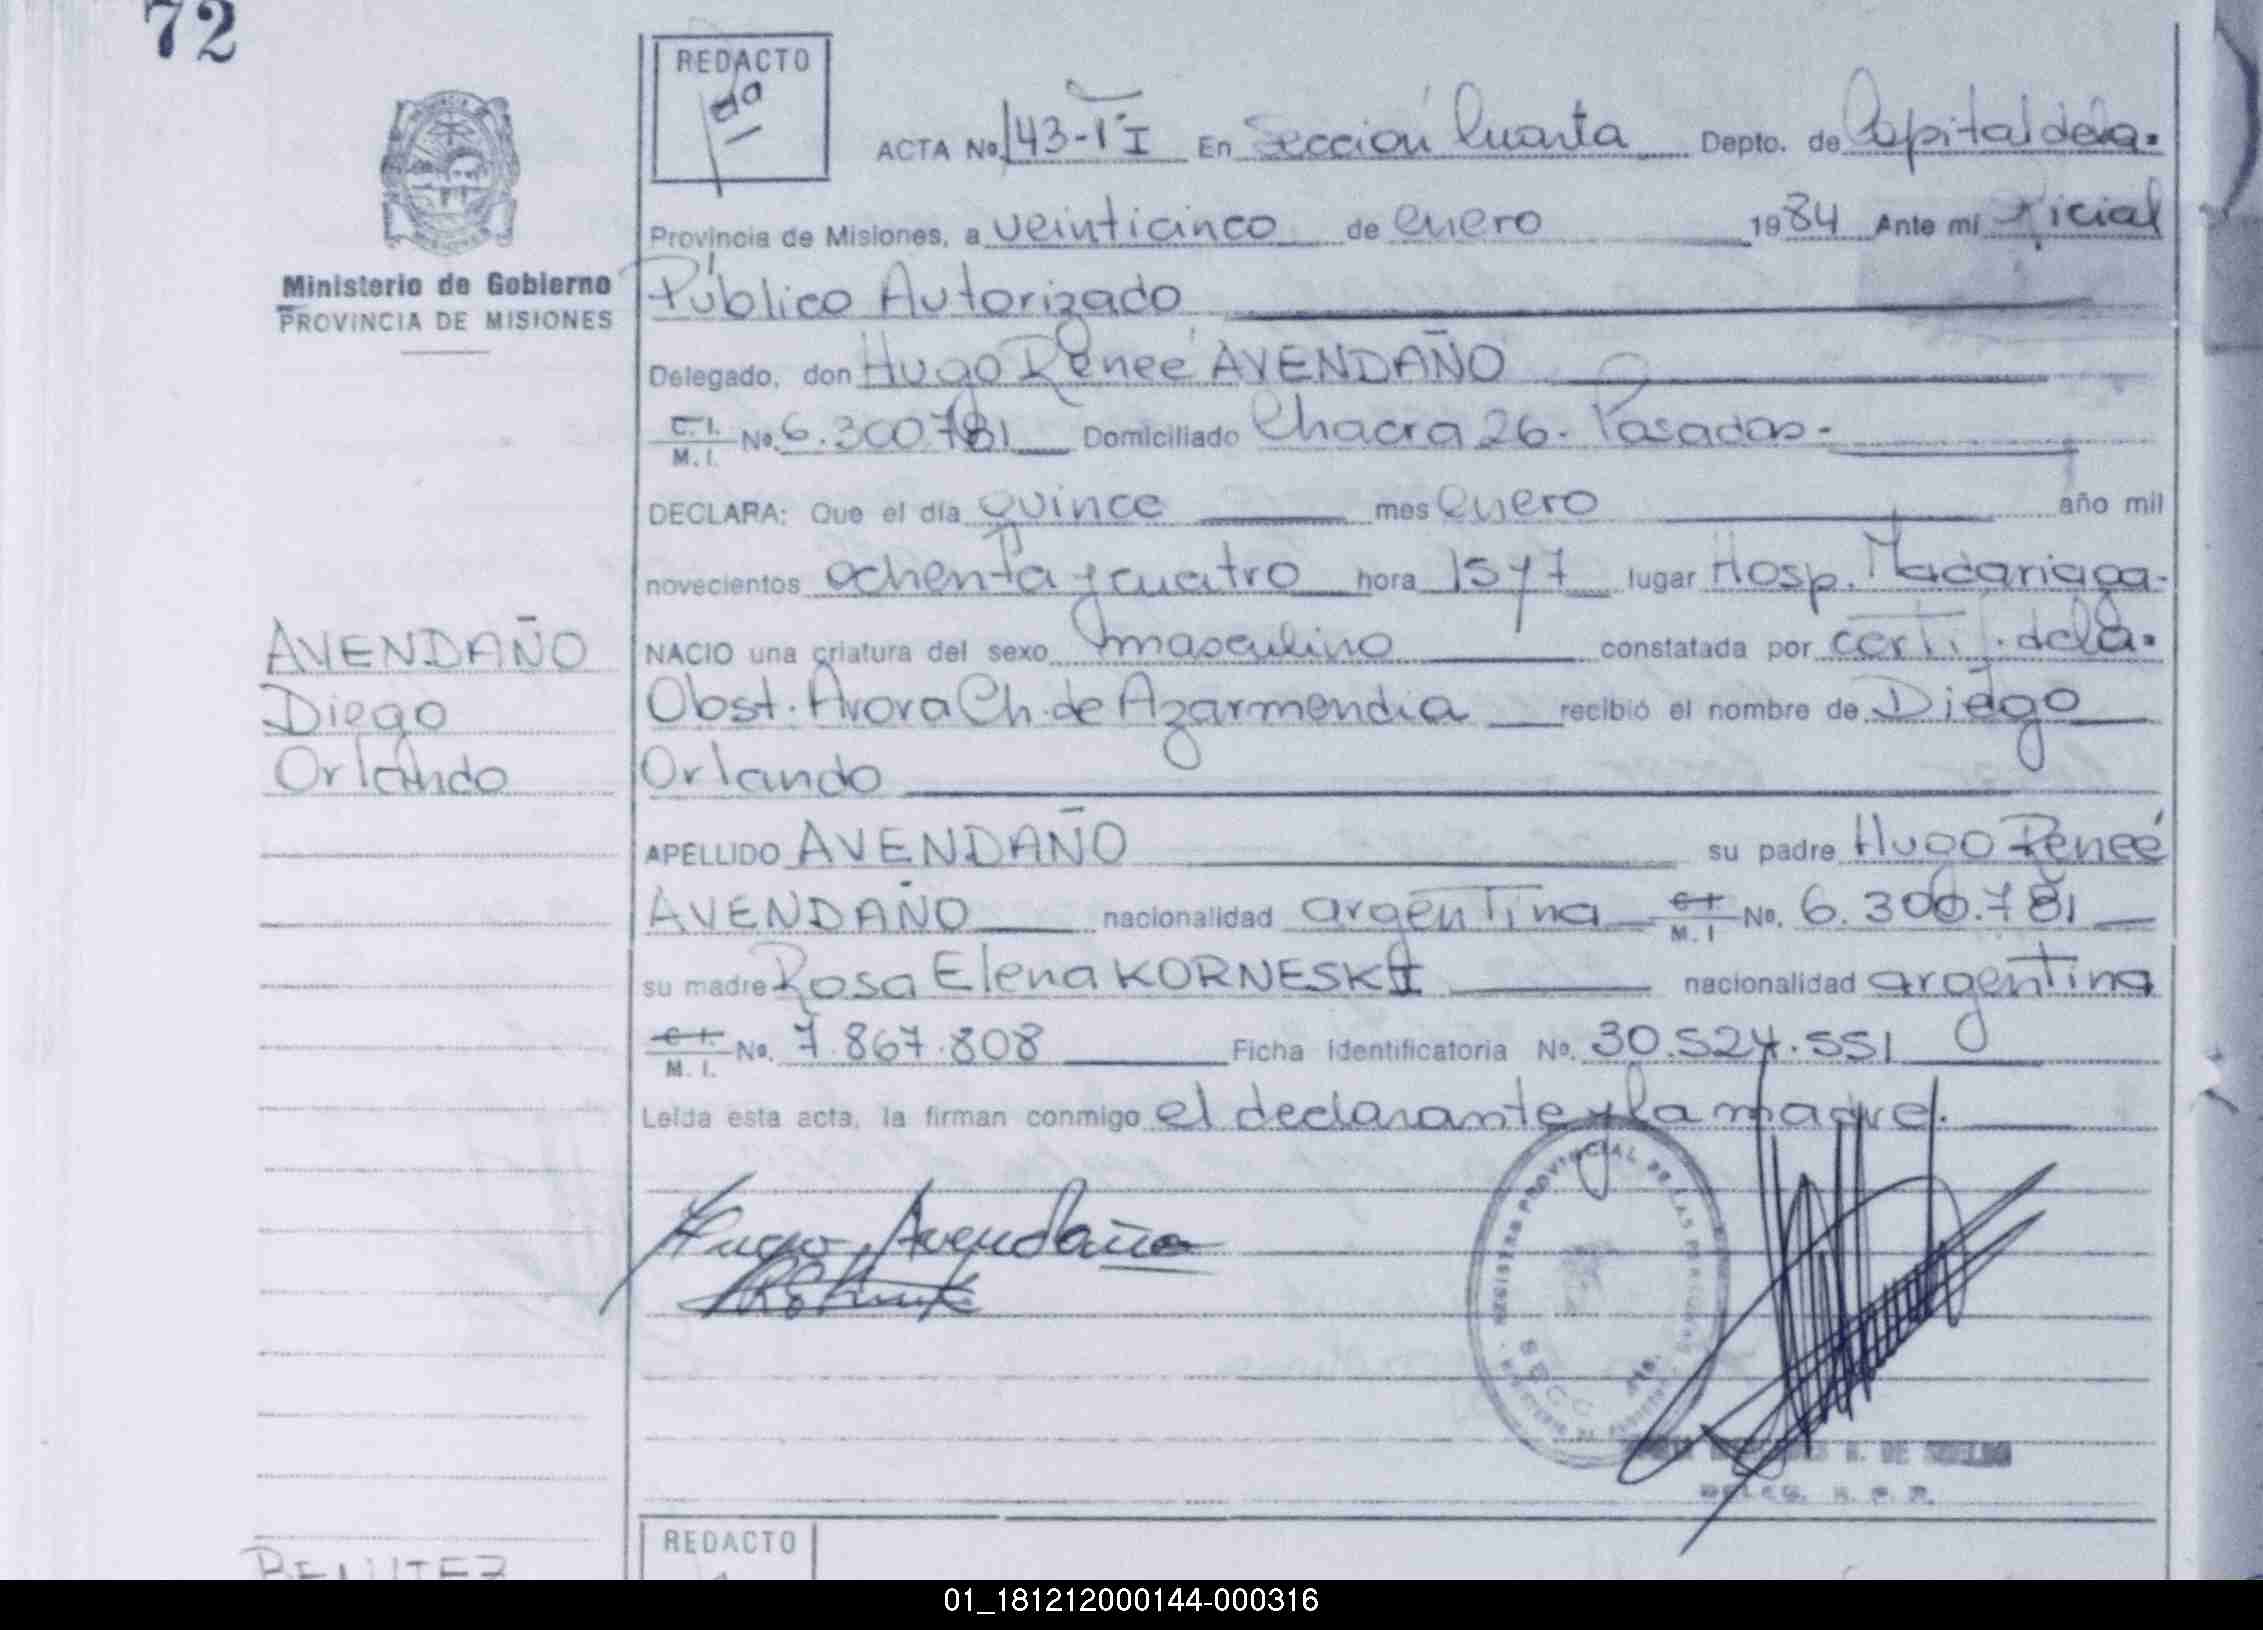 72
REDACTO
ACTA No. 143-TI En Sección Cuarta Depto. de Capital de la.
Provincia de Misiones, a veinticinco de enero 1984 Ante mí Oficial
Público Autorizado
Ministerio de Gobierno
PROVINCIA DE MISIONES
Delegado, don Hugo Reneé AVENDAÑO
C. I. M. I. No. 6.300.781 Domiciliado Chacra 26. Posadas.
DECLARA: Que el día quince mes enero año mil
novecientos ochenta y cuatro hora 15 y 7 lugar Hosp. Madariaga.
NACIO una criatura del sexo masculino constatada por certif. de la.
Obst. Arora Ch. de Azarmendia recibió el nombre de Diego
Orlando
AVENDAÑO
Diego
Orlando
APELLIDO AVENDAÑO su padre Hugo Reneé
AVENDAÑO nacionalidad argentina C I M. I No. 6.300.781
su madre Rosa Elena KORNESKI nacionalidad argentina
C I. M. I. No. 7.867.808 Ficha identificatoria No. 30.524.551
Leída esta acta, la firman conmigo el declarante y la madre.
Hugo Avendaño
REGISTRO PROVINCIAL DE LAS PERSONAS
DELEG. R. P. P.
REDACTO
BENITEZ
01_181212000144-000316